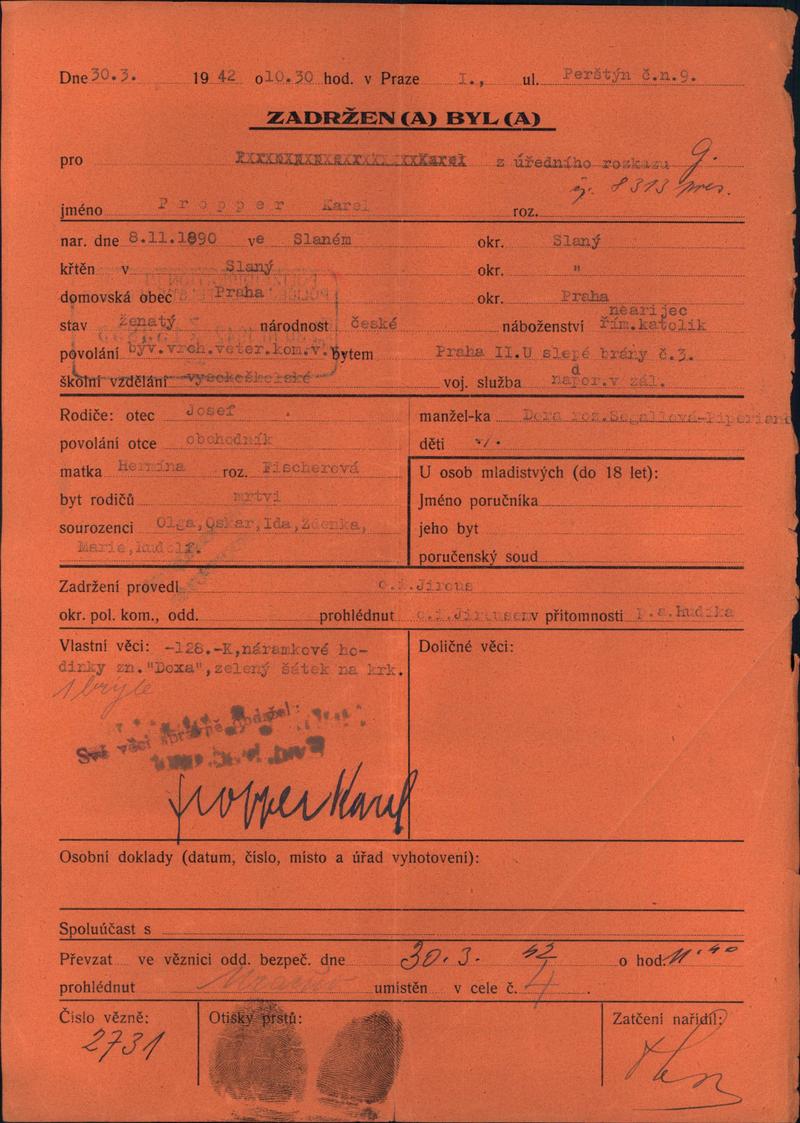 Dne 30.3. 1942 o 10.30 hod. v Praze I., ul. Perštýn č.n.9.
ZADRŽEN(A) BYL(A)
pro Karel z úředního rozkazu
čj. 8313 pres.
jméno Propper Karel roz.
nar. dne 8.11.1890 ve Slaném okr. Slaný
křtěn v Slaný okr. "
domovská obec Praha okr. Praha
nearijec
stav ženatý národnost české náboženství řím.katolík
povolání býv.vrch.veter.kom.v.v. bytem Praha II.U slepé brány č.3.
školní vzdělání vysokoškolské voj. služba napor.v zál.
d
Rodiče: otec Josef
povolání otce obchodník
matka Hermína roz. Fischerová
byt rodičů mrtvi
sourozenci Olga,Oskar,Ida,Zdenka,
Marie,Rudolf.
manžel-ka Dora roz.Segallová-Piperian
děti ./.
U osob mladistvých (do 18 let):
Jméno poručníka
jeho byt
poručenský soud
Zadržení provedl o.i.Jirous
okr. pol. kom., odd. prohlédnut o.i.Jirousem v přítomnosti p.a.Rudika
Vlastní věci: -128.-K,náramkové ho-
dinky zn."Doxa",zelený šátek na krk.
1 brýle
Své věci správně obdržel:
Propper Karel
Doličné věci:
Osobní doklady (datum, číslo, místo a úřad vyhotovení):
Spoluúčast s
Převzat ve věznici odd. bezpeč. dne 30.3. 42 o hod. 11.40
prohlédnut umístěn v cele č. 4
Číslo vězně:
2731
Otisky prstů:
Zatčení nařídil: